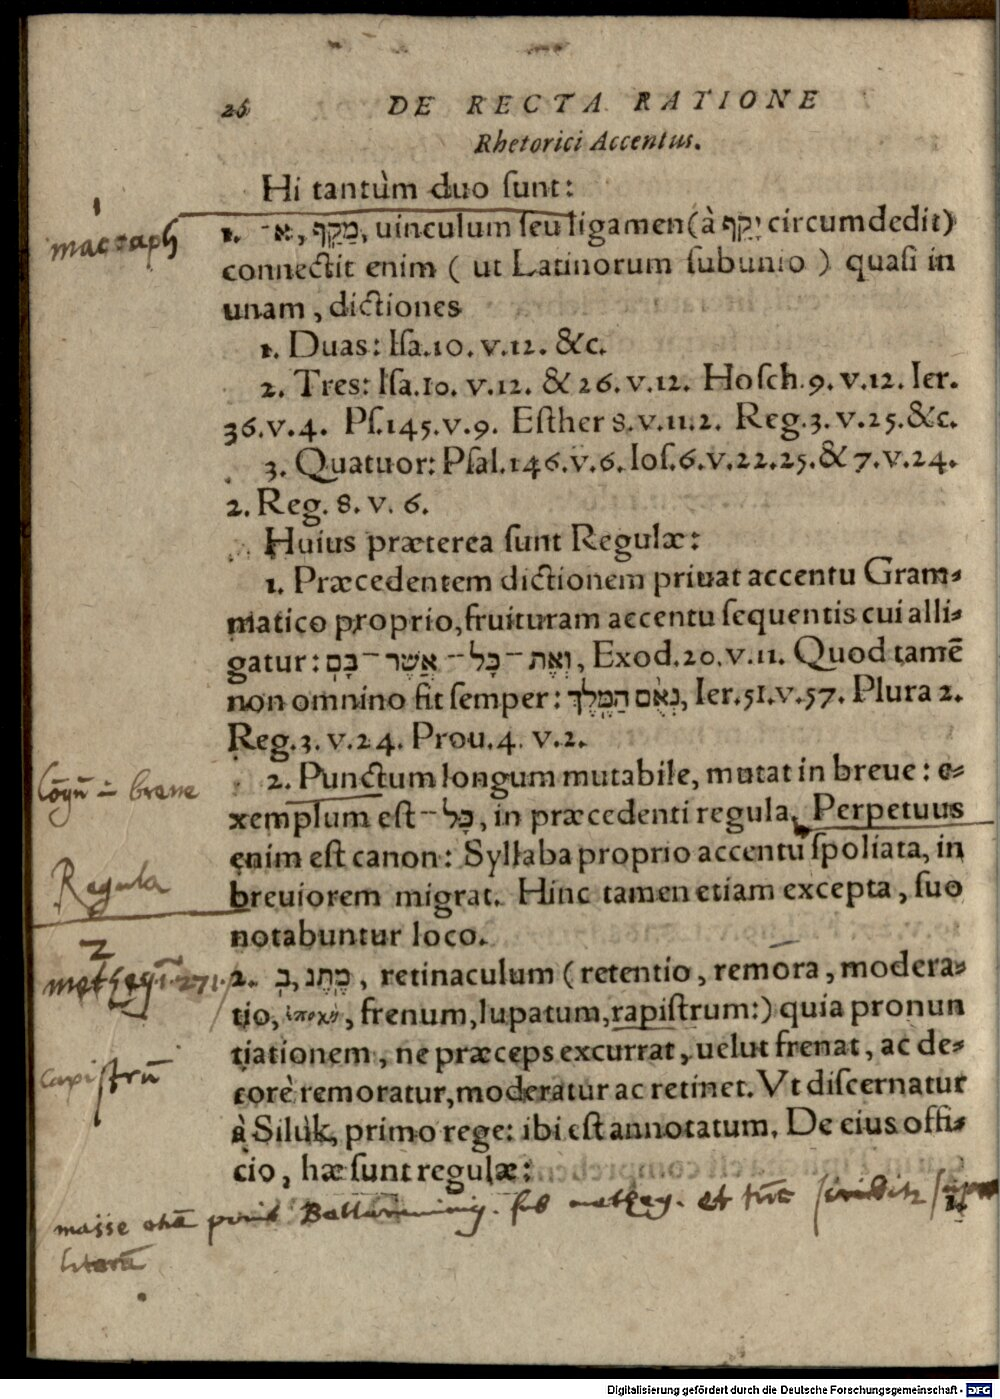 26 DE RECTA RATIONE
Rhetorici Accentus.
Hi tantùm duo ſunt:
1. א־, מַקֵף, uinculum ſeu ligamen (à יָקַף circumdedit)
connectit enim ( ut Latinorum ſubunio ) quaſi in
unam, dictiones
1. Duas: Iſa. 10. v. 12. &c.
2. Tres: Iſa. 10. v. 12. & 26. v. 12. Hoſch. 9. v. 12. Ier.
36. v. 4. Pſ. 145. v. 9. Eſther 8. v. 11. 2. Reg. 3. v. 25. &c.
3. Quatuor: Pſal. 146. v. 6. Ioſ. 6. v. 22. 25. & 7. v. 24.
2. Reg. 8. v. 6.
Huius præterea ſunt Regulæ:
1. Præcedentem dictionem priuat accentu Gram-
matico proprio, fruituram accentu ſequentis cui alli-
gatur: וְאֶת־כָּל־אֲשֶׁר־בָּם, Exod. 20. v. 11. Quod tamē
non omnino fit ſemper: נְאֻם הַמֶּלֶךְ, Ier. 51. v. 57. Plura 2.
Reg. 3. v. 24. Prou. 4. v. 2.
2. Punctum longum mutabile, mutat in breue: e-
xemplum eſt כָּל־, in præcedenti regula. Perpetuus
enim eſt canon: Syllaba proprio accentu ſpoliata, in
breuiorem migrat. Hinc tamen etiam excepta, ſuo
notabuntur loco.
2. בֽ, מֶתֶג, retinaculum (retentio, remora, modera-
tio, frenum, lupatum, rapiſtrum:) quia pronun
tiationem, ne præceps excurrat, uelut frenat, ac de-
corè remoratur, moderatur ac retinet. Vt diſcernatur
à Silùk, primo rege: ibi eſt annotatum. De eius offi-
cio, hæ ſunt regulæ:
1.
1
maccaph
brene
Regula
2
metheg 271.
capiſtrū